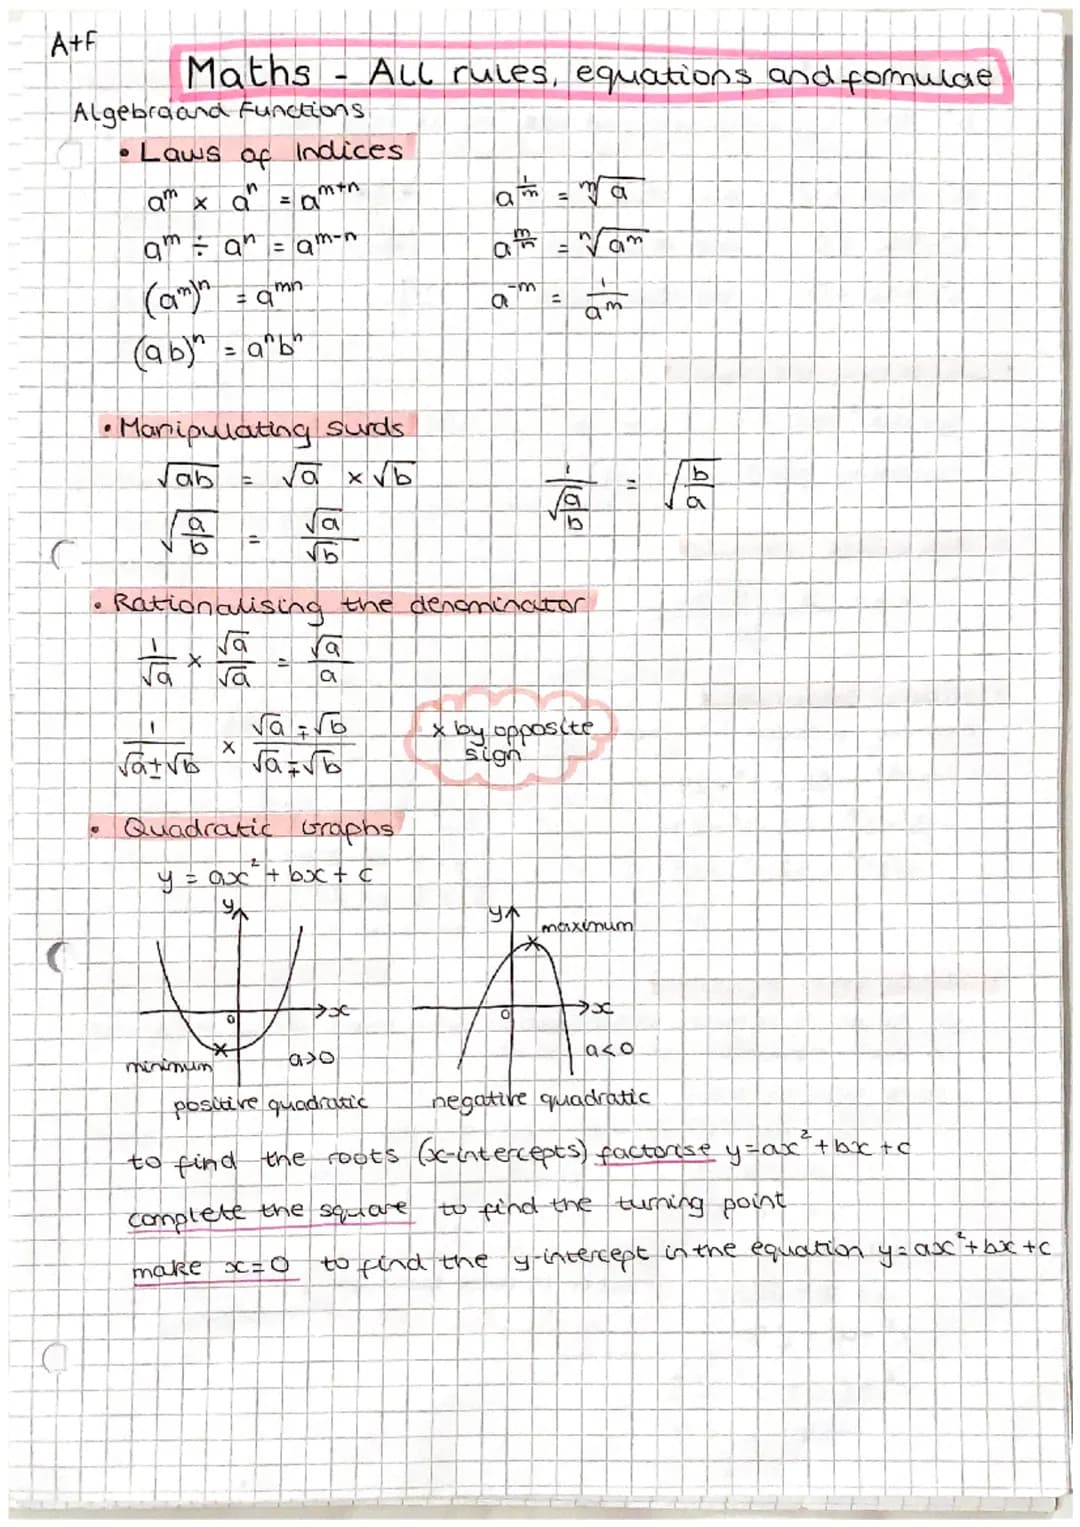 A+F
Maths - ALL rules, equations and formulae
Algebra and Functions
• Laws of Indices
aᵐ × aⁿ = aᵐ⁺ⁿ
a^(1/m) = ᵐ√a
aᵐ ÷ aⁿ = aᵐ⁻ⁿ
a^(m/n) = ⁿ√aᵐ
(aᵐ)ⁿ = aᵐⁿ
a⁻ᵐ = 1/aᵐ
(ab)ⁿ = aⁿbⁿ
• Manipulating surds
√ab = √a × √b
1/√(a/b) = √(b/a)
√(a/b) = √a/√b
• Rationalising the denominator
1/√a × √a/√a = √a/a
1/(√a±√b) × (√a∓√b)/(√a∓√b)
x by opposite
sign
• Quadratic Graphs
y = ax² + bx + c
y
x
0
minimum
a>0
positive quadratic
y
maximum
x
0
a<0
negative quadratic
to find the roots (x-intercepts) factorise y=ax²+bx+c
complete the square to find the turning point
make x=0 to find the y-intercept in the equation y=ax²+bx+c